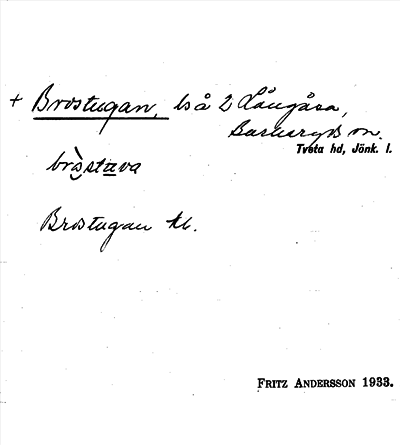 + Brostugan, ls å 2 Långåsa,
Barkeryds sn.
Tveta hd, Jönk. l.
bròstava
Brostugan kb.
FRITZ ANDERSSON 1933.